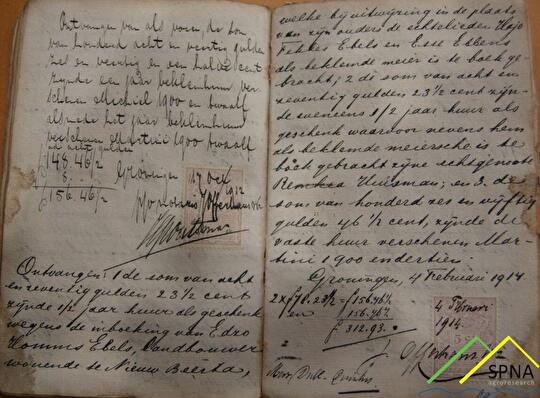 Ontvangen van als voren, de som
van honderd acht en veertig gulden
zes en veertig en een halve cent
zijnde een jaar beklemhuur ver-
schenen Michiel 1900 en twaalf
alsmede het jaar beklemhuur
verschenen Martini 1900 twaalf
en acht gulden
ƒ 148.46½
" 8.
ƒ 156.46½
Groningen
17 Dec
1912
Ontvangen: 1 de som van acht
en zeventig gulden 23½ cent
zijnde ½ jaar huur als geschenk
wegens de inboeking van Edzo
Hommes Ebels, Landbouwer
wonende te Nieuw Beerta,
welke bij uitwijzing in de plaats
van zijne ouders de echtelieden Hajo
Fekkes Ebels en Esse Ebbens
als beklemde meier is te boek ge-
bracht; 2 de som van acht en
zeventig gulden 23½ cent zijn-
de eveneens 1/2 jaar huur als
geschenk waardoor nevens hem
als beklemde meiersche is te
boek gebracht zijne echtgenoote
Renchea Huisman; en 3. de
som van honderd zes en vijftig
gulden 46½ cent, zijnde de
vaste huur verschenen Mar-
tini 1900 en dertien.
Groningen, 4 Februari 1914
2 x ƒ 78.23½ = ƒ 156.46½
en 156.46½
ƒ 312.93.
4 Februari
1914.
SPNA
agroresearch